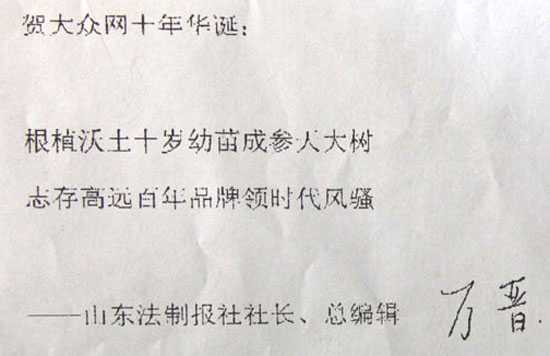 贺大众网十年华诞：
根植沃土十岁幼苗成参天大树
志存高远百年品牌领时代风骚
——山东法制报社社长、总编辑 万晋